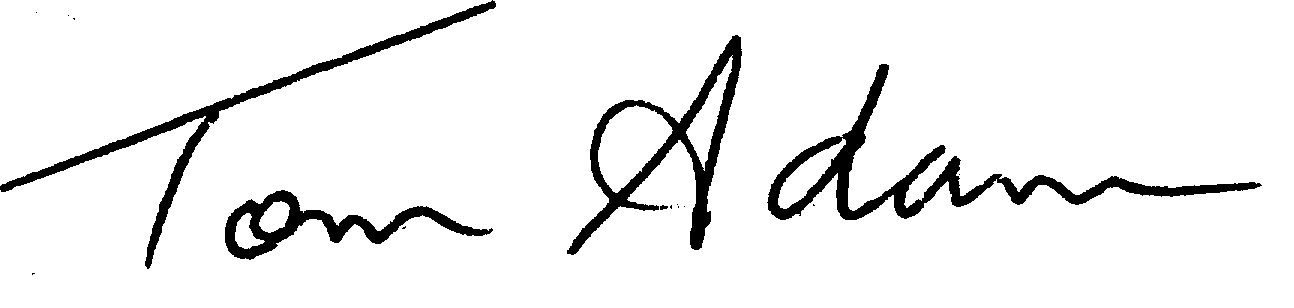 Tom Adam